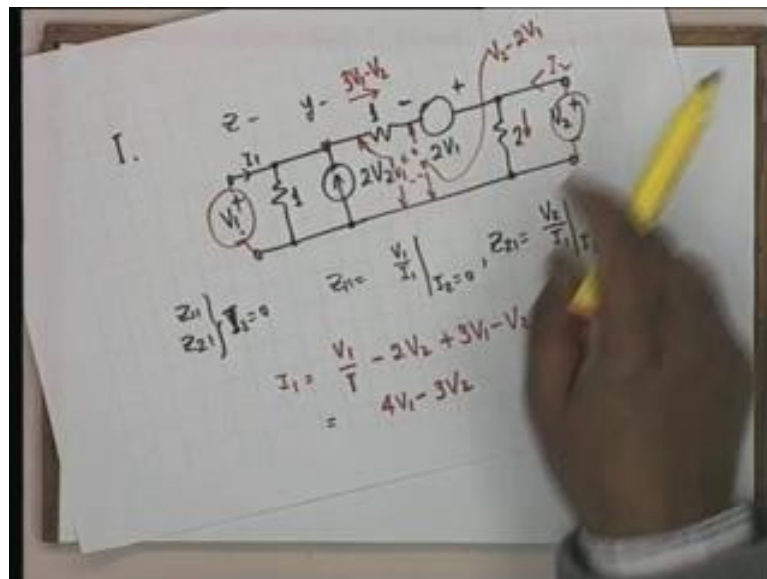 I.
Z - y - 3V₁-V₂
V₂-2V₁
I₁ 1 - + I₂
V₁ + 1 2V₂ 2V₁ 2 V₂ +
Z₁₁ = V₁/I₁ | I₂=0 , Z₂₁ = V₂/I₁ | I
Z₁₁
Z₂₁ } I₂=0
I₁ = V₁/1 - 2V₂ + 3V₁-V₂
= 4V₁-3V₂